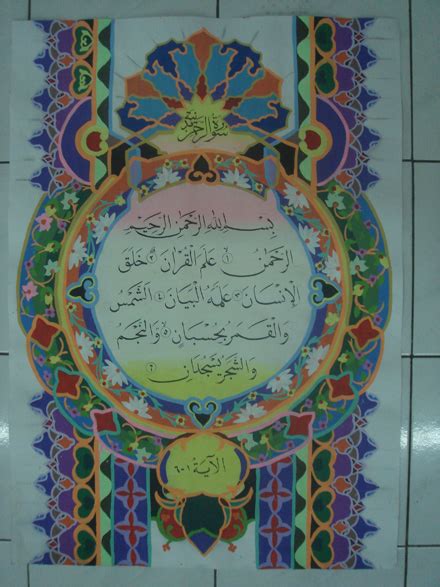 سورة الرحمن
بسم الله الرحمن الرحيم
الرحمن ١ علم القرآن ٢ خلق
الإنسان ٣ علمه البيان ٤ الشمس
والقمر بحسبان ٥ والنجم
والشجر يسجدان ٦
الآية ١-٦